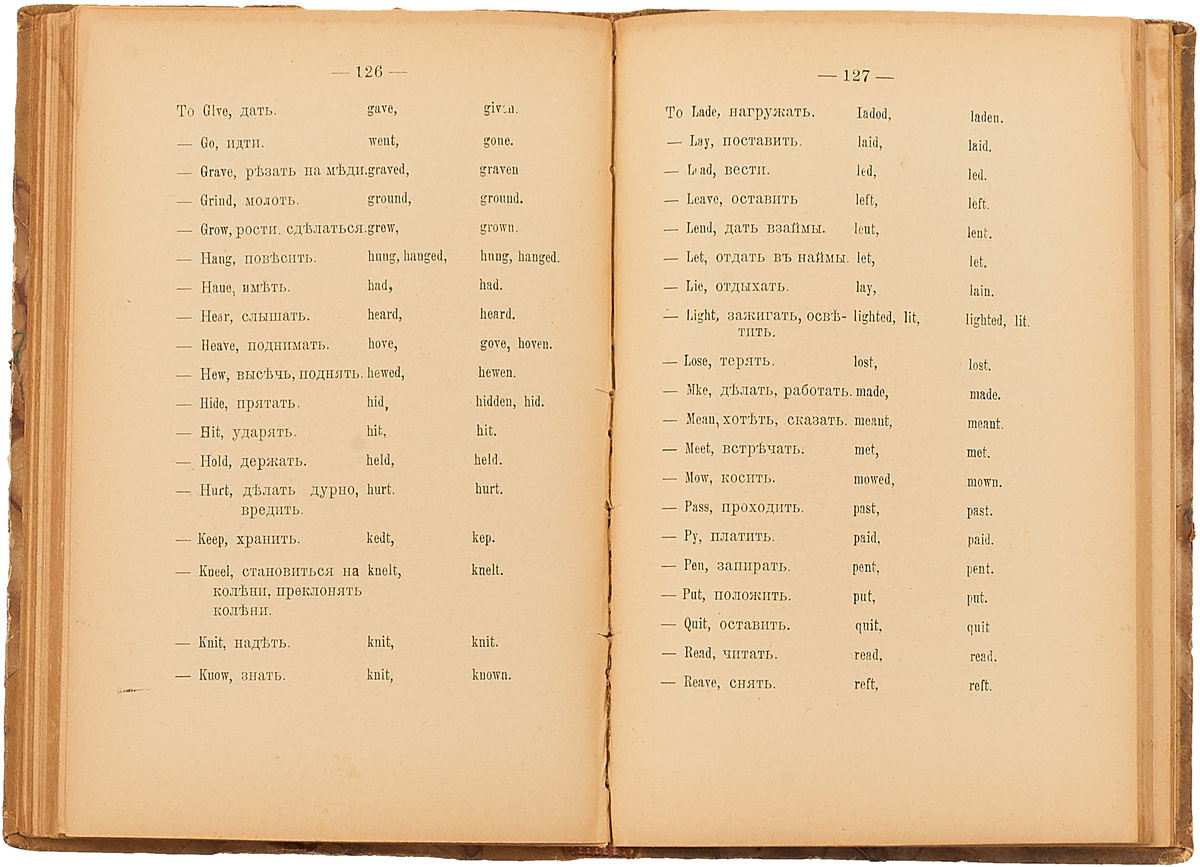 — 126 —
То Give, дать. gave, given.
— Go, идти. went, gone.
— Grave, рѣзать на мѣди. graved, graven
— Grind, молоть. ground, ground.
— Grow, рости. сдѣлаться. grew, grown.
— Hang, повѣсить. hung, hanged, hung, hanged.
— Haue, имѣть. had, had.
— Hear, слышать. heard, heard.
— Heave, поднимать. hove, gove, hoven.
— Hew, высѣчь, поднять. hewed, hewen.
— Hide, прятать. hid, hidden, hid.
— Hit, ударять. hit, hit.
— Hold, держать. held, held.
— Hurt, дѣлать дурно, hurt. hurt.
вредить.
— Keep, хранить. kedt, kep.
— Kneel, становиться на knelt, knelt.
колѣни, преклонять
колѣни.
— Knit, надѣть. knit, knit.
— Know, знать. knit, known.
— 127 —
To Lade, нагружать. Iadod, laden.
— Lay, поставить. laid, laid.
— Lead, вести. led, led.
— Leave, оставить left, left.
— Lend, дать взаймы. lent, lent.
— Let, отдать въ наймы. let, let.
— Lie, отдыхать. lay, lain.
— Light, зажигать, освѣ- lighted, lit, lighted, lit.
тить.
— Lose, терять. lost, lost.
— Mke, дѣлать, работать. made, made.
— Mean, хотѣть, сказать. meant, meant.
— Meet, встрѣчать. met, met.
— Mow, косить. mowed, mown.
— Pass, проходить. past, past.
— Py, платить. paid, paid.
— Pen, запирать. pent, pent.
— Put, положить. put, put.
— Quit, оставить. quit, quit
— Read, читать. read, read.
— Reave, снять. reft, reft.